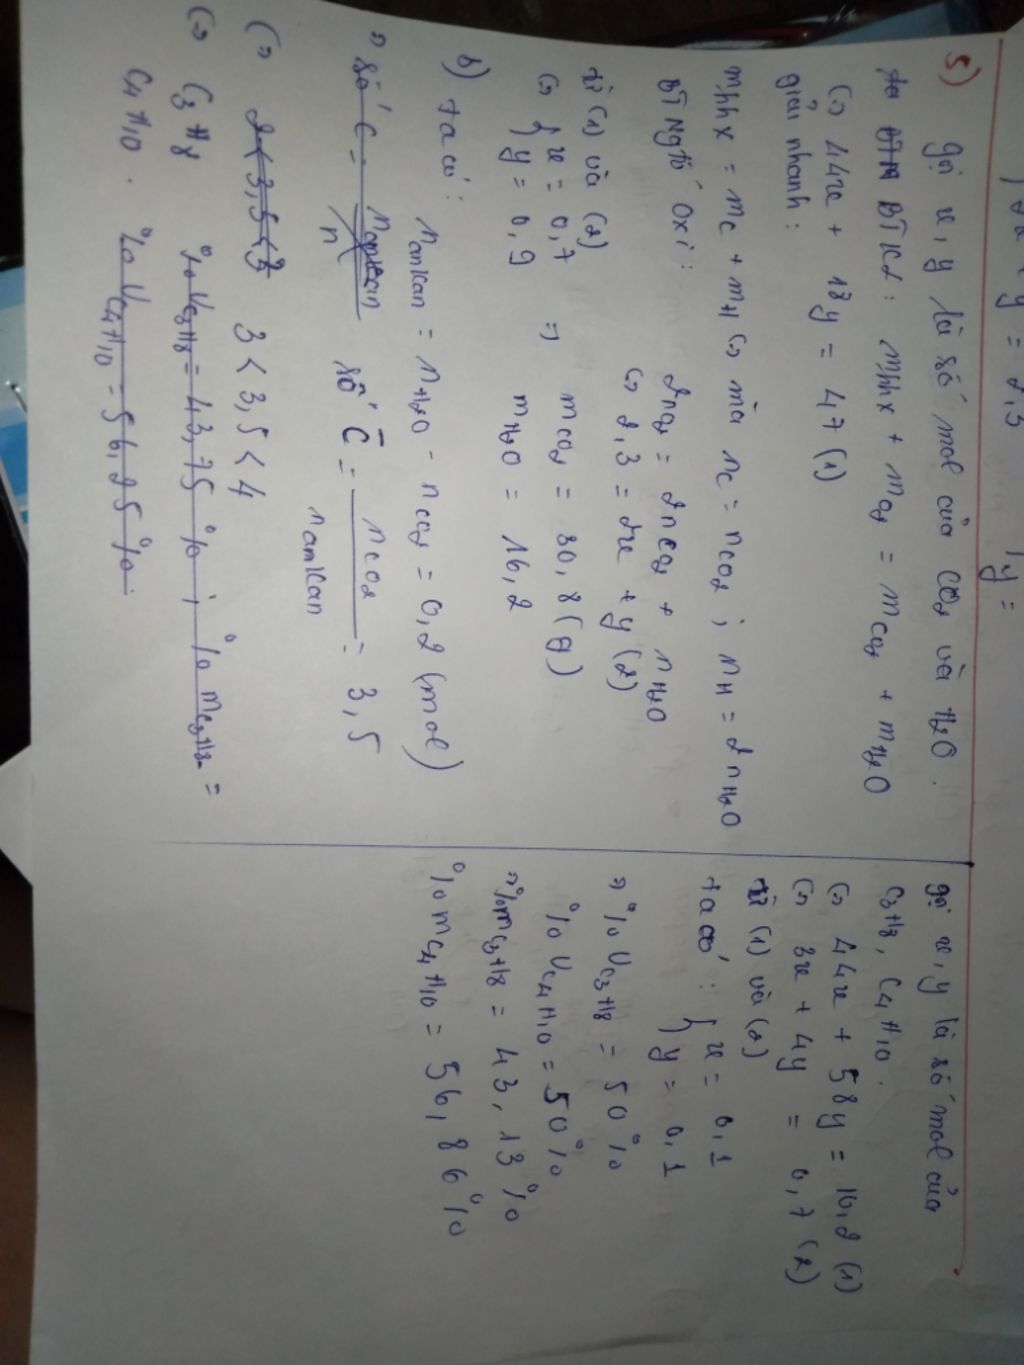 y = 2,3
y =
5) gọi x, y là số mol của CO2 và H2O.
BTKL: mhhx + mO2 = mCO2 + mH2O
(=) 44x + 18y = 47 (1)
giải nhanh:
mhhx = mC + mH (=) mà nC = nCO2 ; nH = 2nH2O
BT Ngtố Oxi: 2nO2 = 2nCO2 + nH2O
(=) 2,3 = 2x + y (2)
từ (1) và (2)
(=) { x = 0,7 => mCO2 = 30,8 (g)
y = 0,9 mH2O = 16,2
b) ta có:
nankan = nH2O - nCO2 = 0,2 (mol)
số C = nankan / n số C̄ = nCO2 / nankan = 3,5
(=) 2 < 3,5 < 3 3 < 3,5 < 4
(=) C3H8 %VC3H8 = 43,75 % ; %mC3H8 =
C4H10. %VC4H10 = 56,25 %
gọi x, y là số mol của
C3H8, C4H10.
(=) 44x + 58y = 10,2 (1)
(=) 3x + 4y = 0,7 (2)
từ (1) và (2)
ta có: { x = 0,1
y = 0,1
=> %VC3H8 = 50%
%VC4H10 = 50%
=> %mC3H8 = 43,13 %
%mC4H10 = 56,86 %